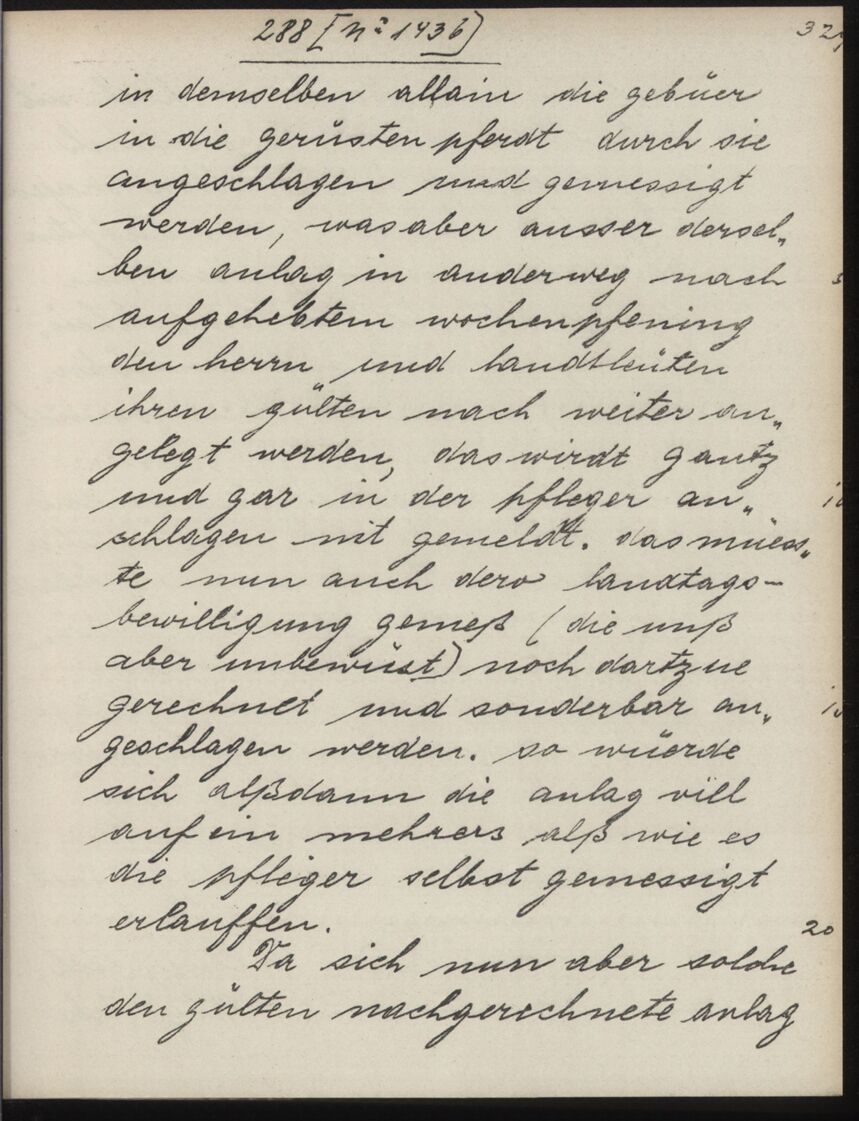 288 [Nº 1436]
32
in demselben allain die gebüer
in die gerüsten pferdt durch sie
angeschlagen und gemessigt
werden, was aber ausser dersel„
ben anlag in anderweg nach
5
aufgehebtem wochenpfening
den herrn und landtleüten
ihren gülten nach weiter an„
gelegt werden, das wirdt gantz
und gar in der pfleger an„
10
schlagen nit gemeldt. das müess„
te nun auch dero landtags-
bewilligung gemeß (die unß
aber unbewüst) noch dartzue
gerechnet und sonderbar an„
15
geschlagen werden. so wüerde
sich alßdann die anlag vill
auf ein mehrers alß wie es
die pfleger selbst gemessigt
erlauffen.
20
Da sich nun aber solche
den gülten nachgerechnete anlag